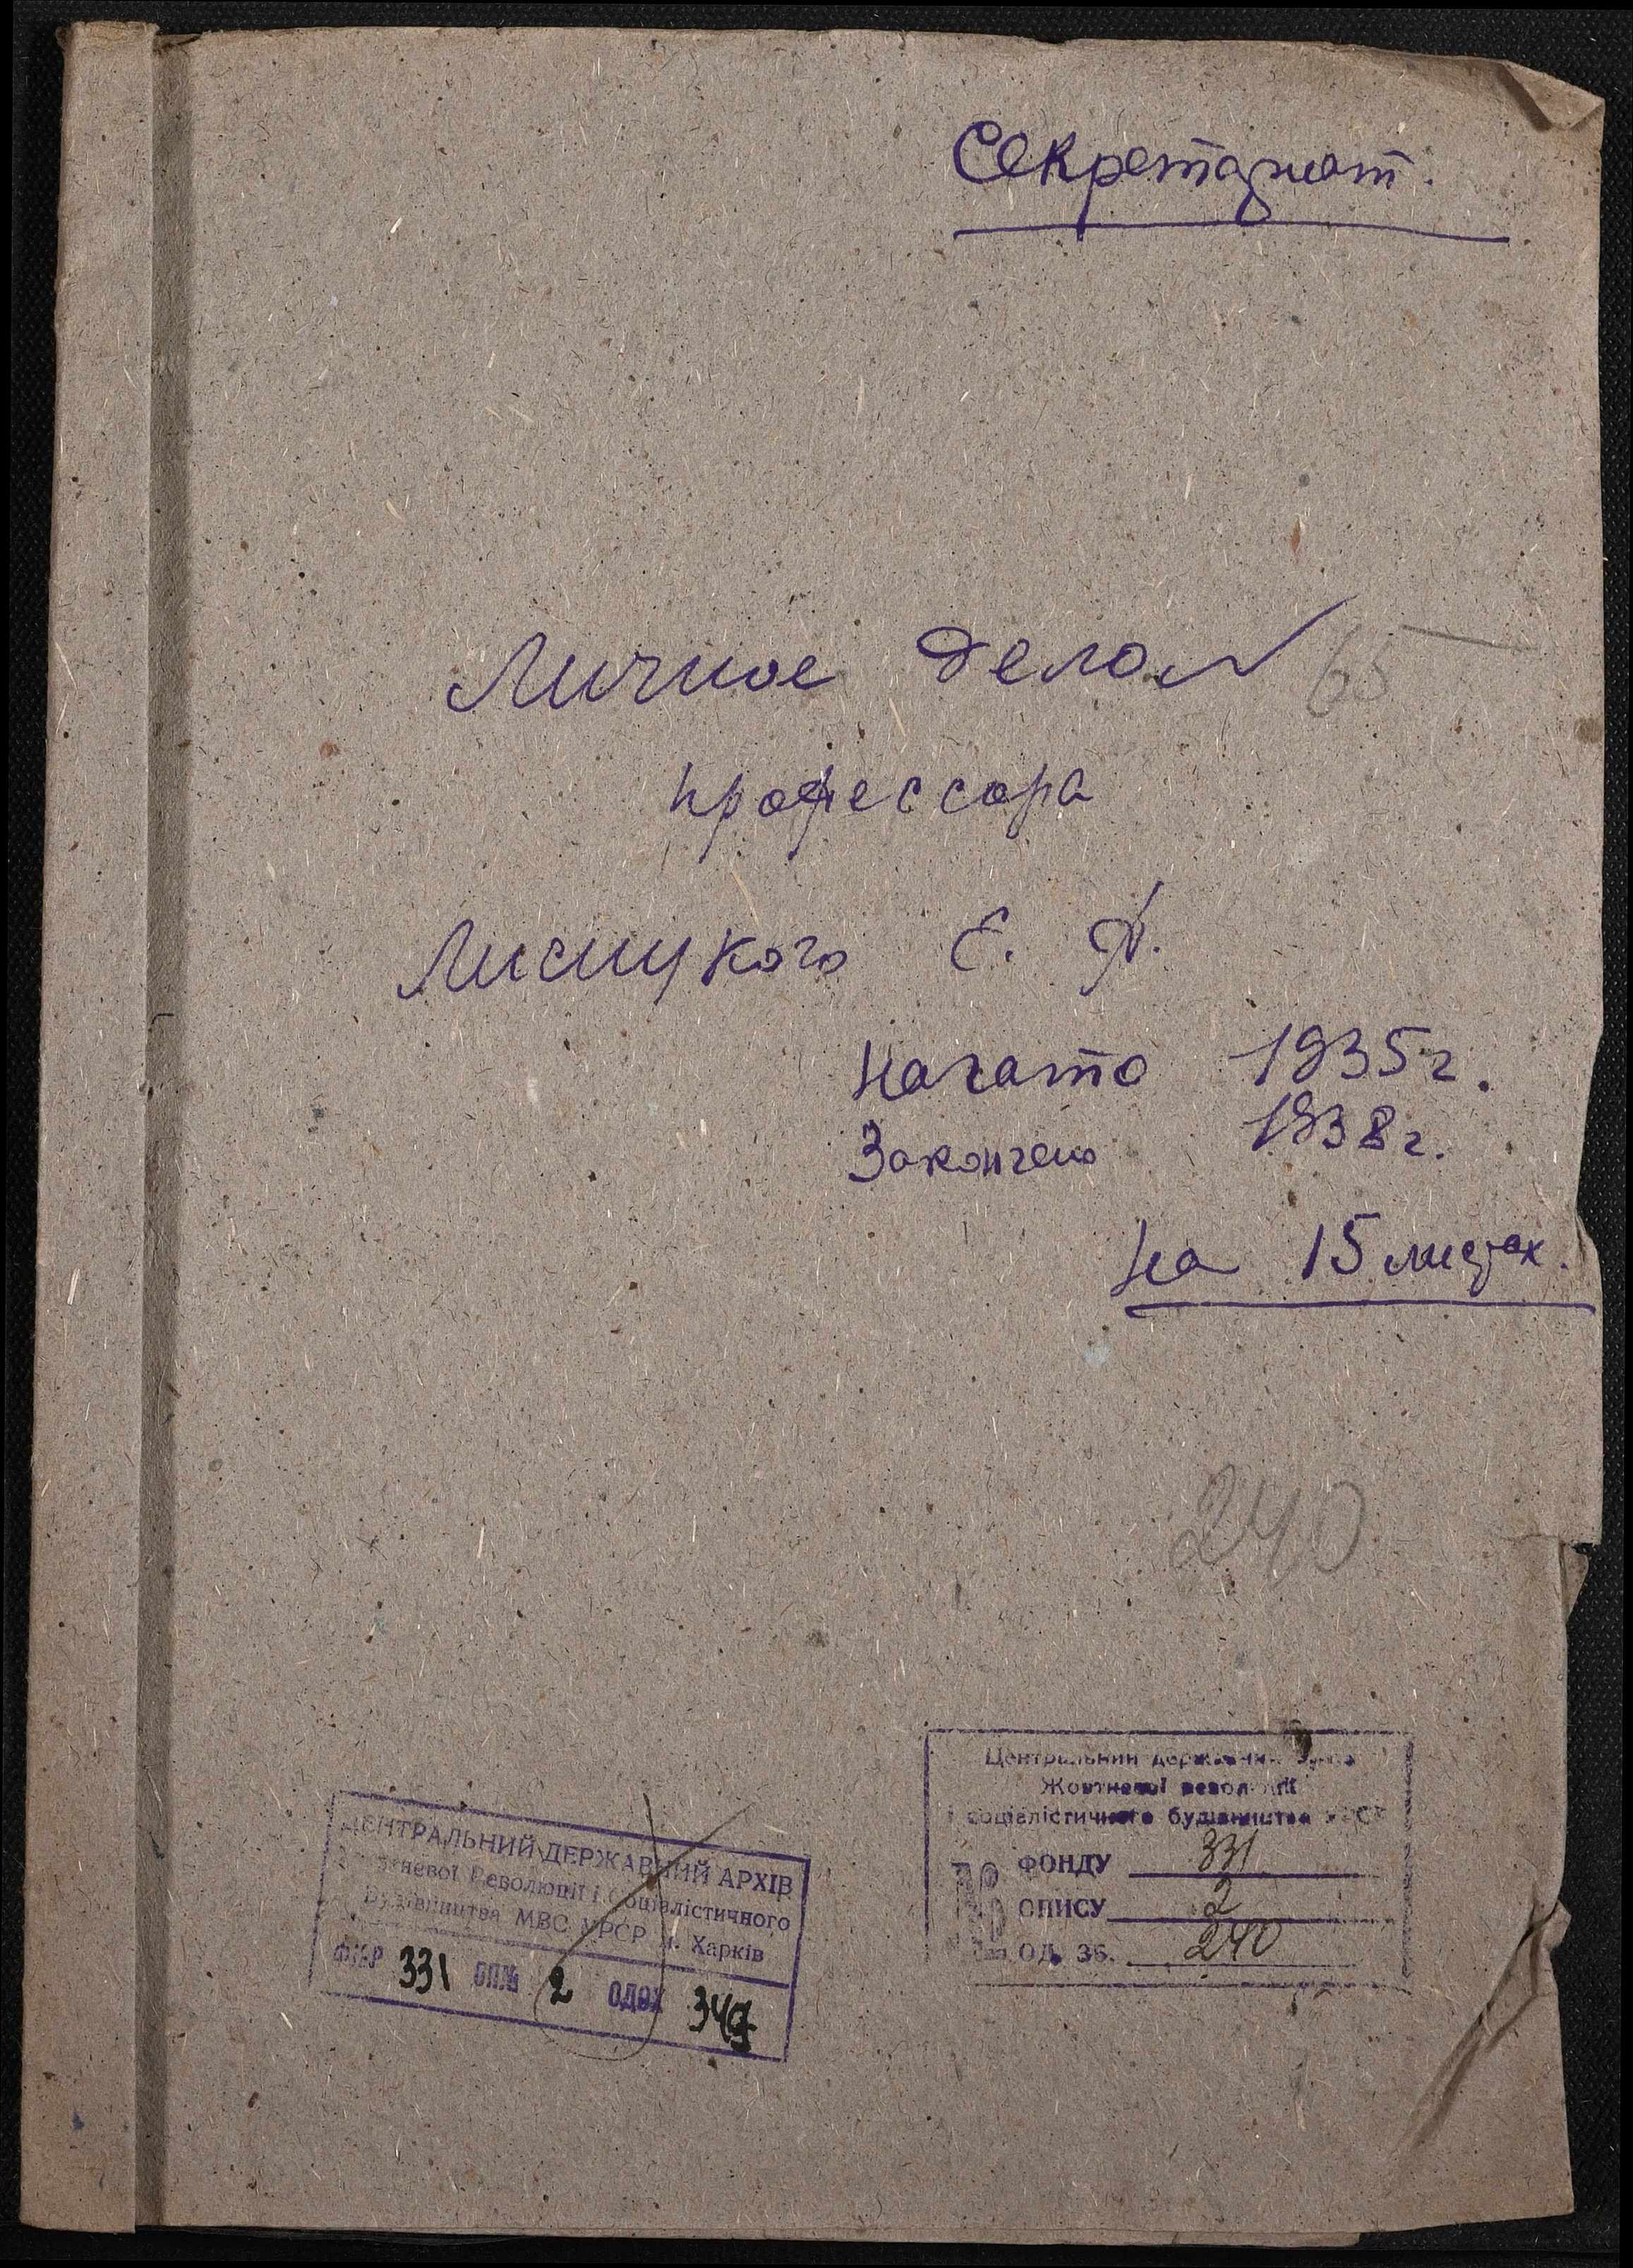 Секретариат.
Личное дело № 65
профессора
Лисицкого Е. А.
Начато 1935 г.
Закончено 1938 г.
на 15 листах.
240
Центральний державний архів
Жовтневої революції
і соціалістичного будівництва УРСР
№ ФОНДУ 331
№ ОПИСУ 2
№ ОД. ЗБ. 240
ЦЕНТРАЛЬНИЙ ДЕРЖАВНИЙ АРХІВ
Жовтневої Революції і Соціалістичного
Будівництва МВС УРСР м. Харків
331 ОП№ 2 ОДЗХ